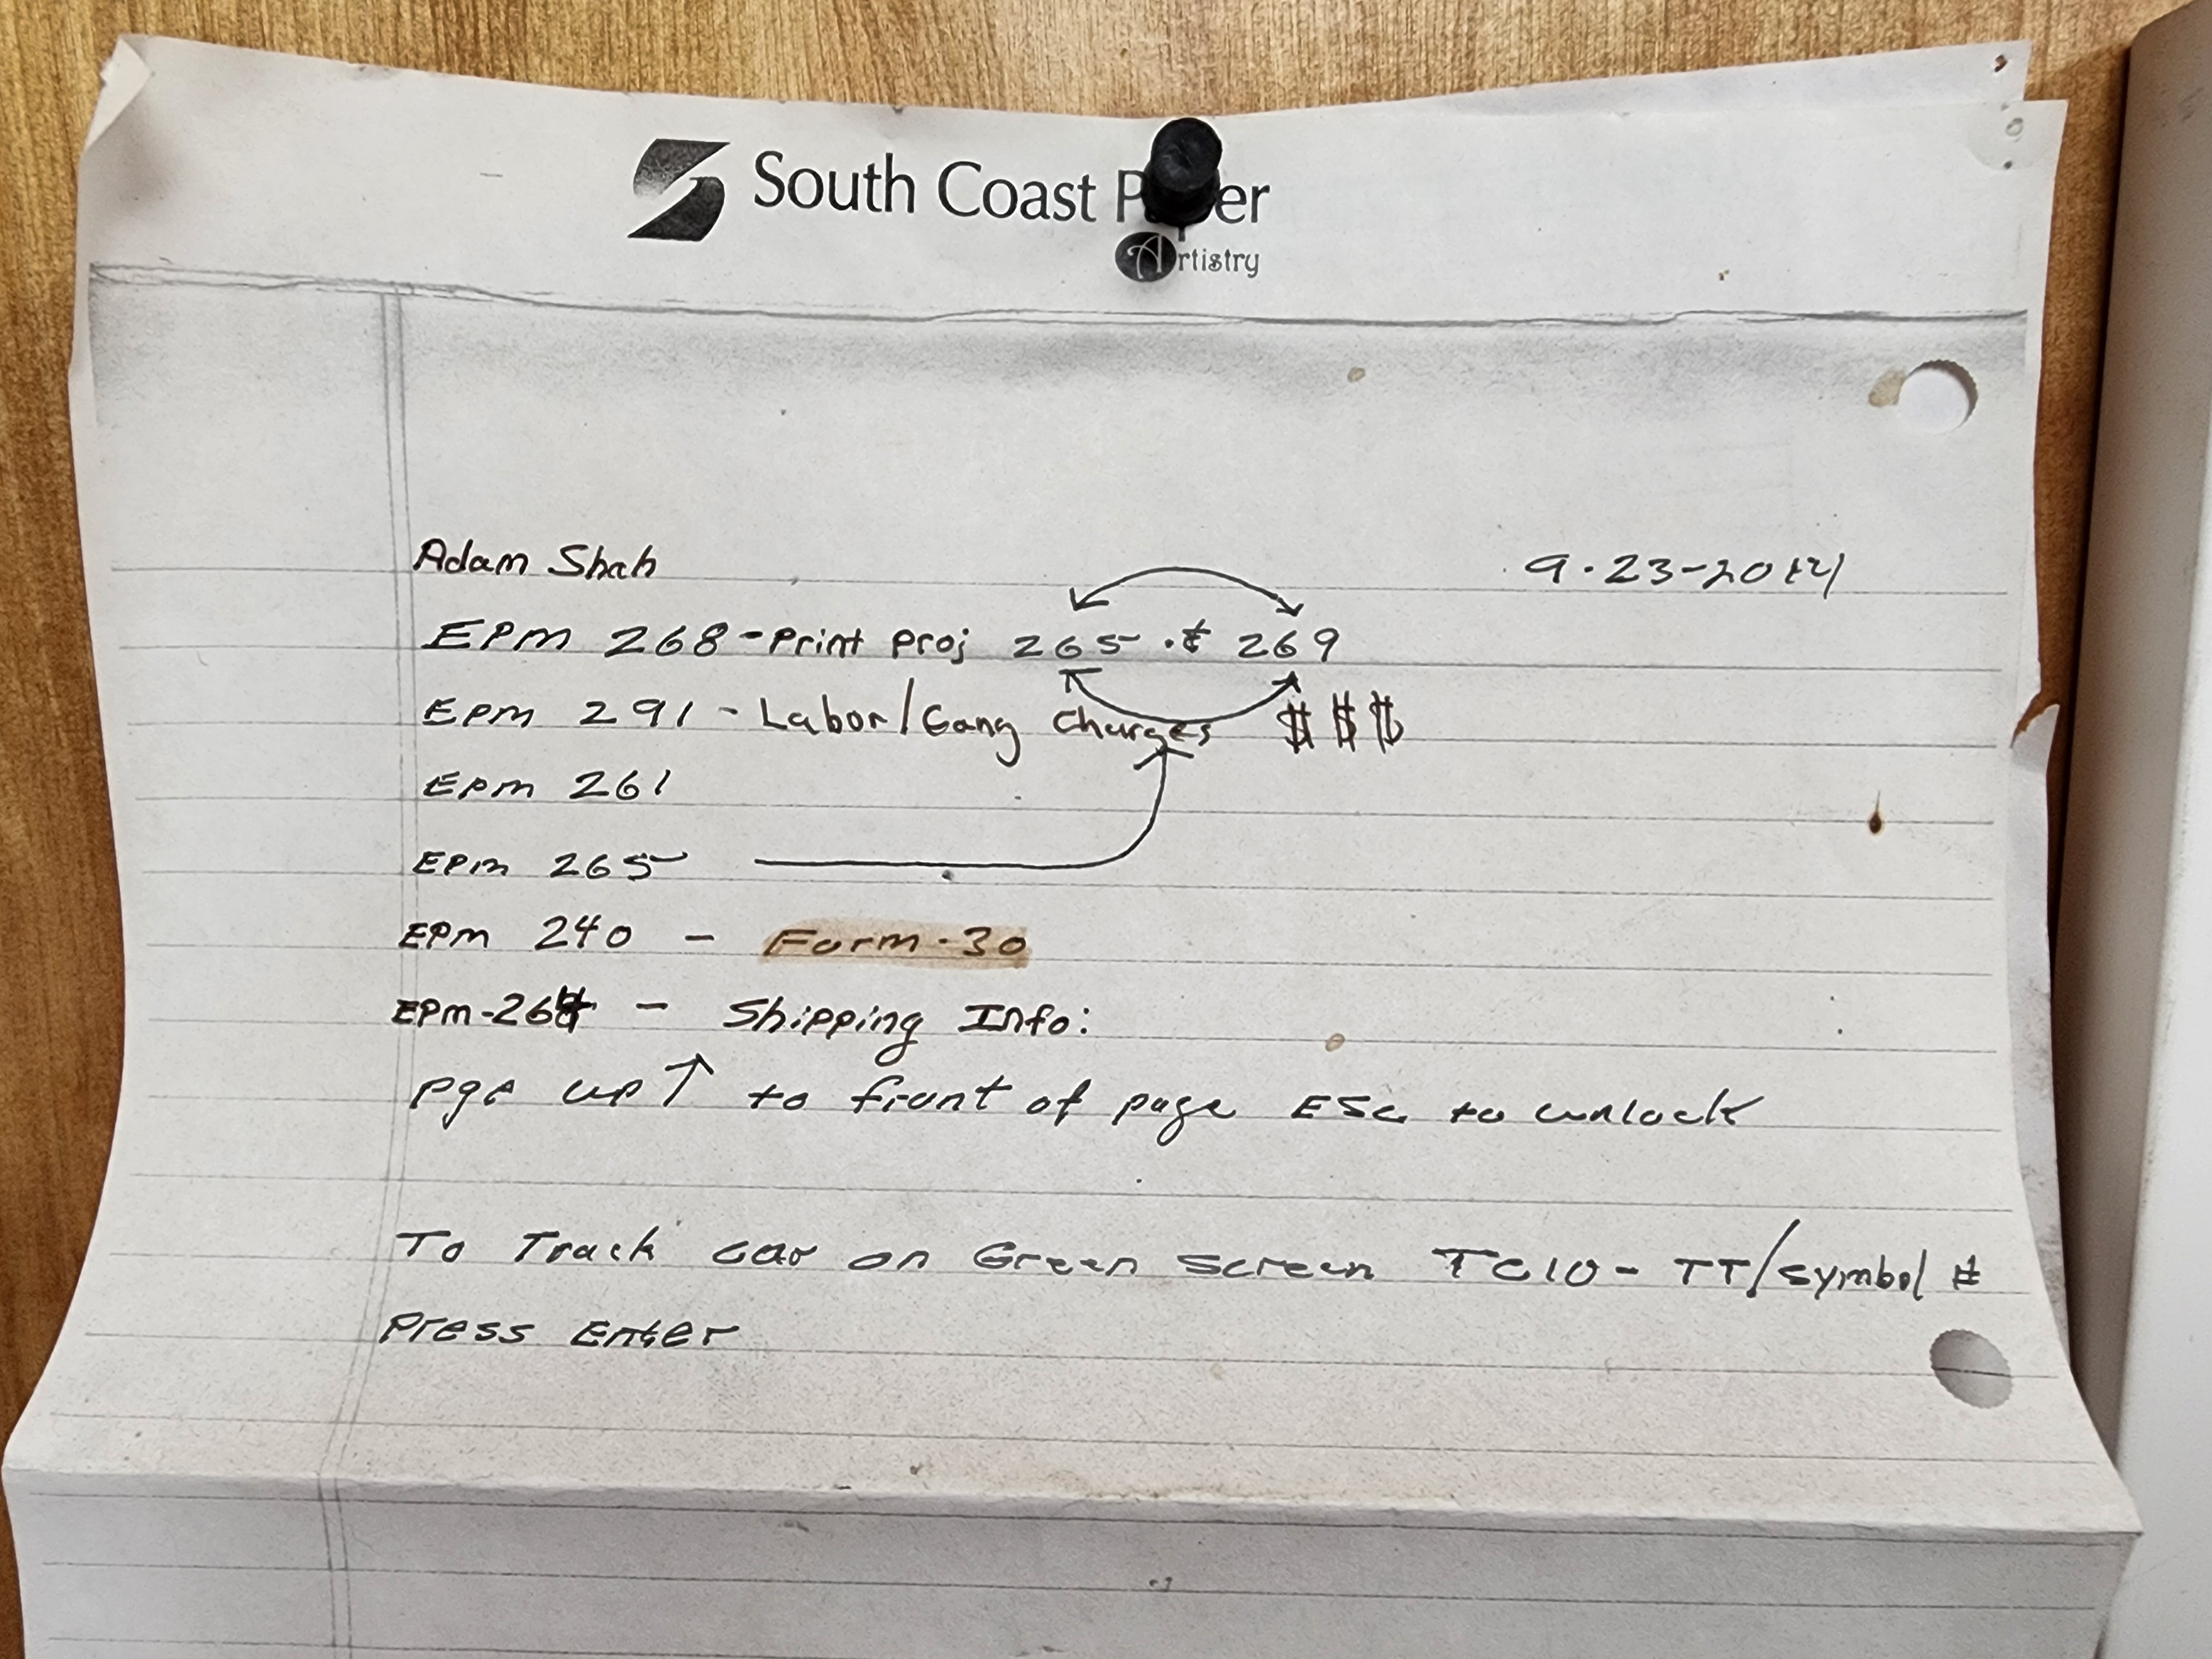 South Coast P er
Artistry
Adam Shah 9-23-20
EPM 268-Print Proj 265 & 269
EPM 291 - Labor/Gang Charges $$$
EPM 261
EPM 265
EPM 240 - Form-30
EPM-264 - Shipping Info:
Pge up ↑ to front of page ESC to unlock
To Track car on Green Screen TC10- TT/symbol #
Press Enter